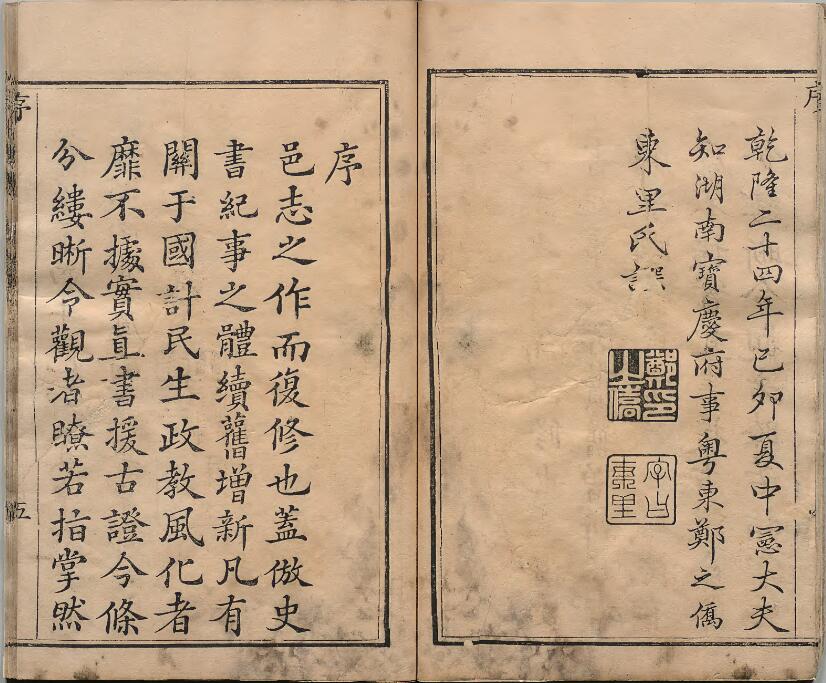 乾隆二十四年己卯夏中憲大夫
知湖南寶慶府事粵東鄭之僑
東里氏譔
鄭印之僑
字曰東里
序
邑志之作而復修也蓋倣史
書紀事之體續舊增新凡有
關于國計民生政教風化者
靡不據實直書援古證今條
分縷晰令觀者瞭若指掌然
序
五